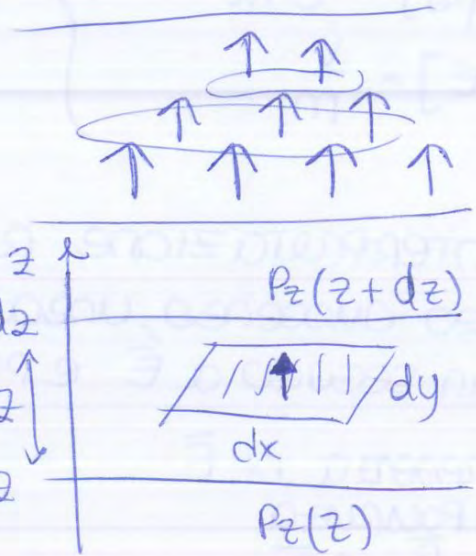 z
Pz(z + dz)
dz
dy
z
dx
z
Pz(z)